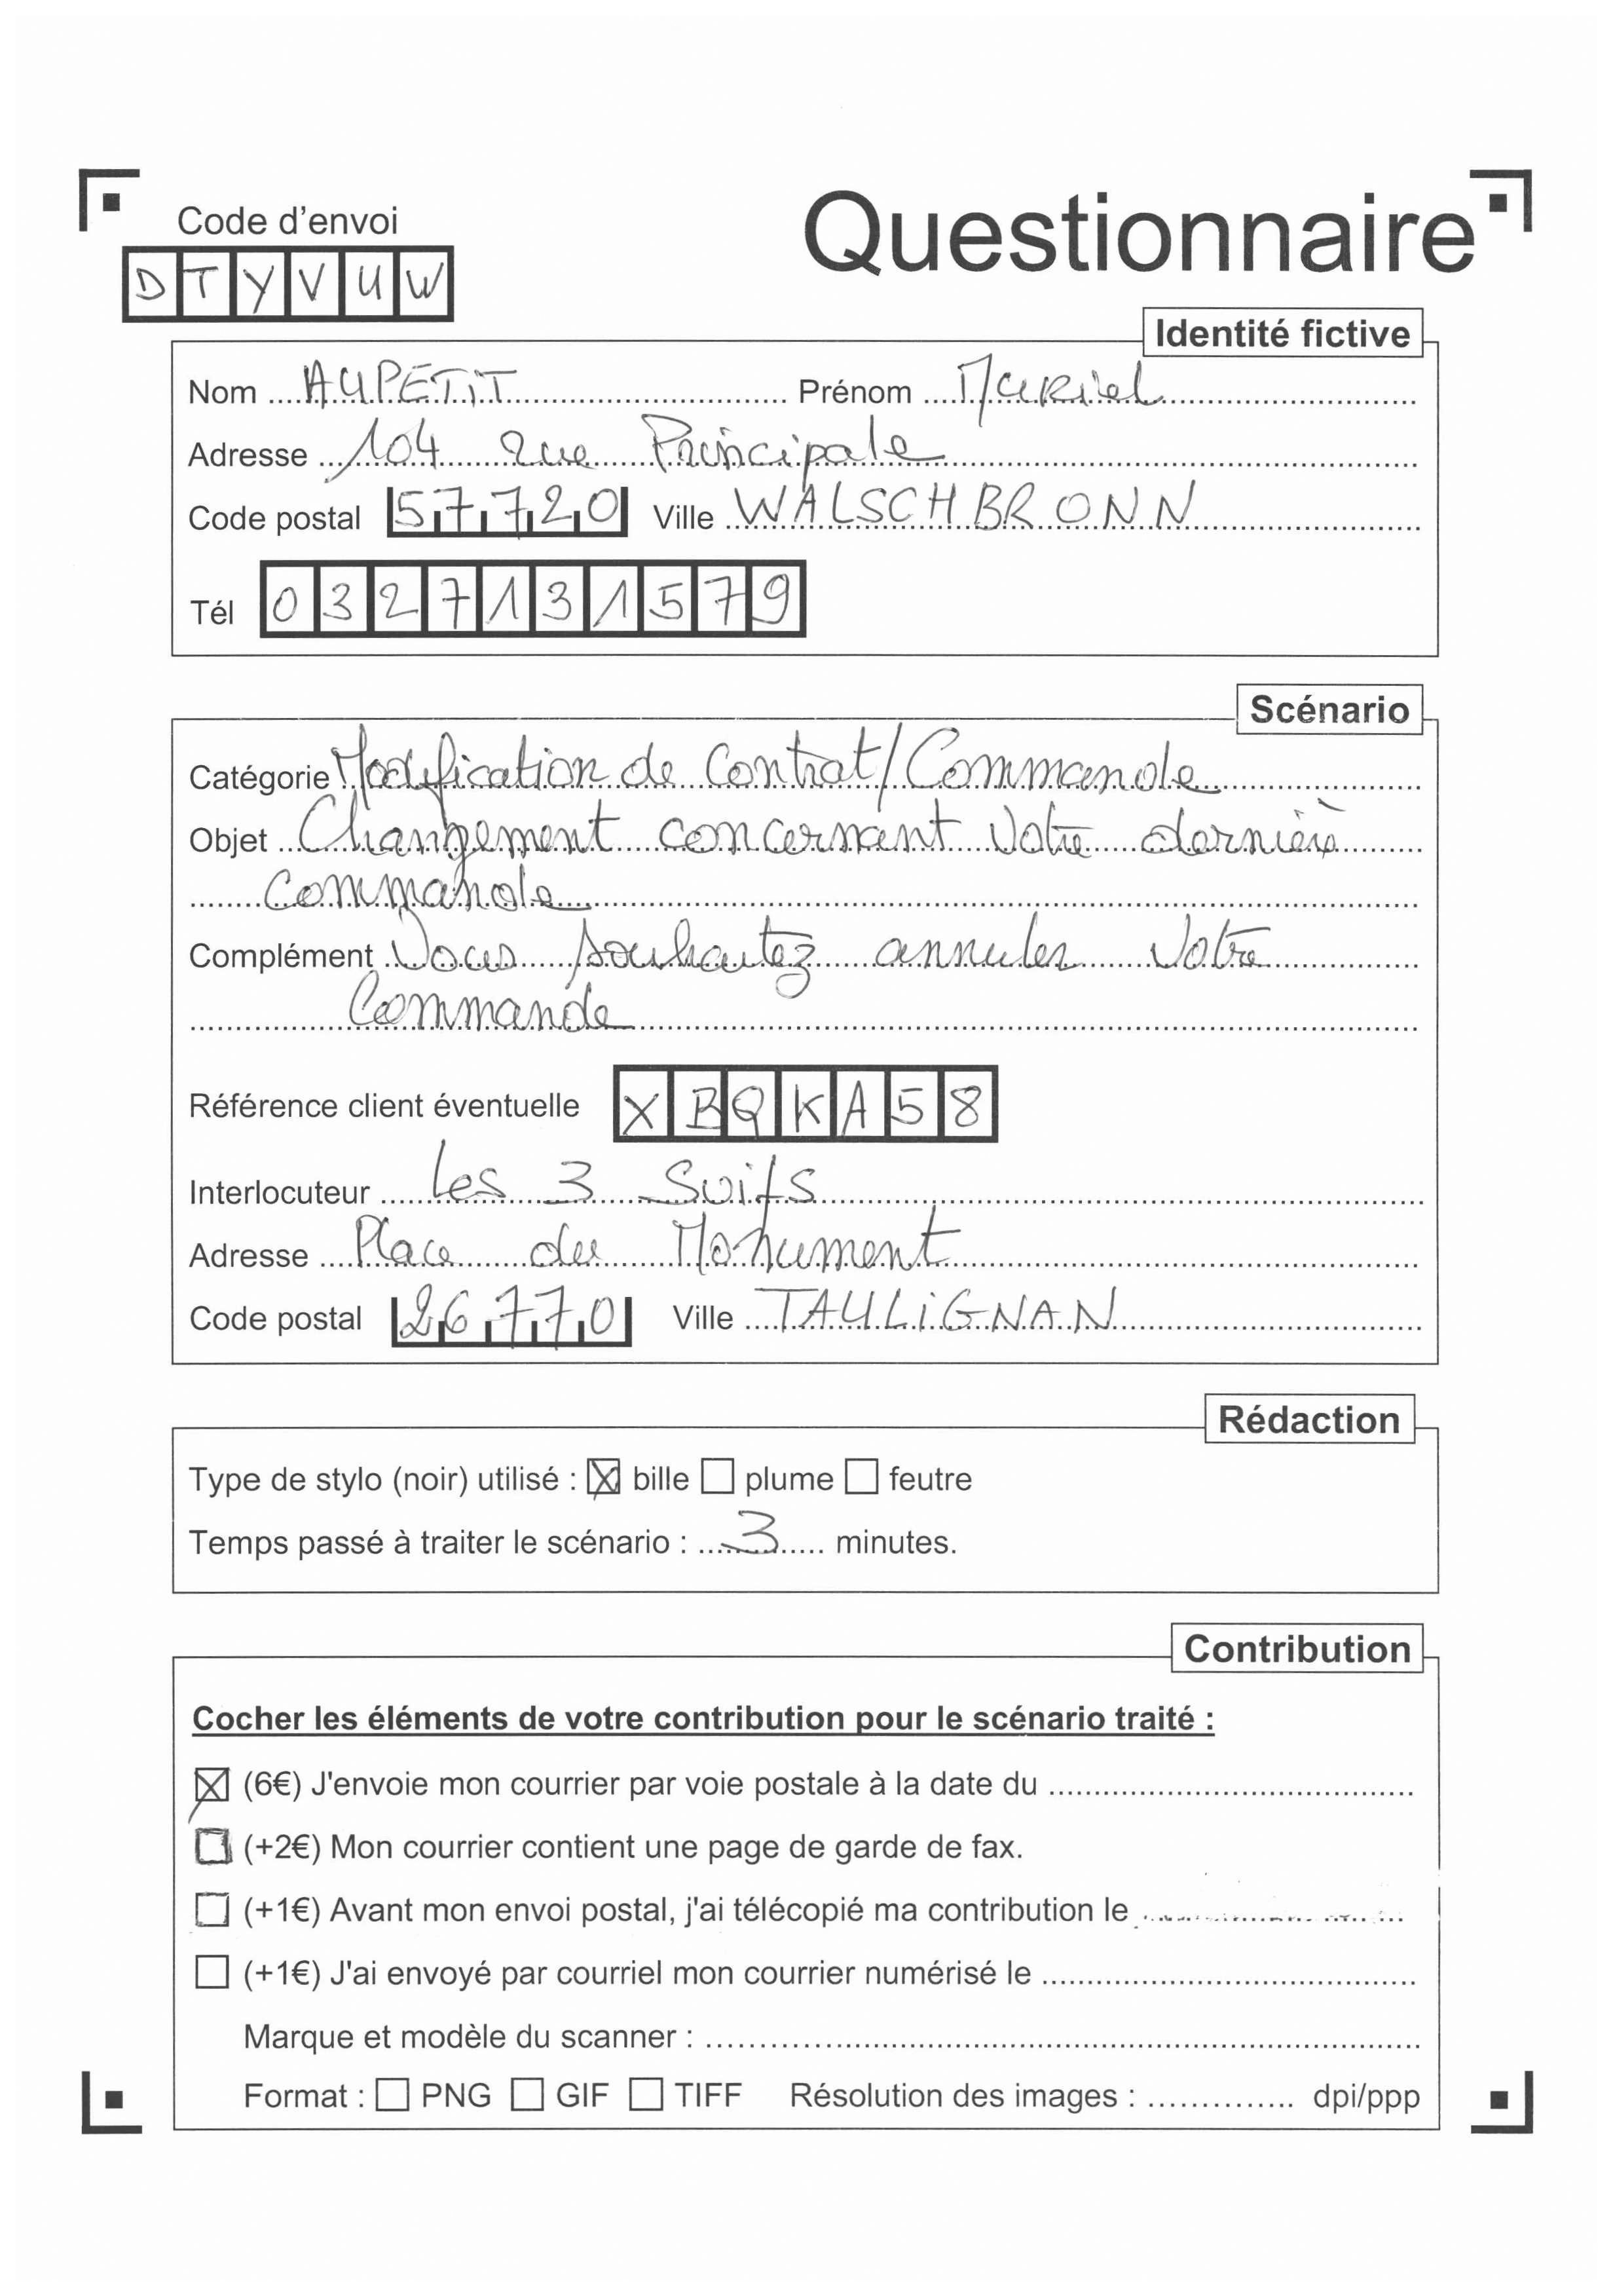 Questionnaire
Code d'envoi
DTYVUW
Identité fictive
Nom AUPETiT Prénom Muriel
Adresse 104 rue Principale
Code postal 57720 Ville WALSCHBRONN
Tél 0327131579
Scénario
Catégorie Modification de Contrat/Commande
Objet Changement concernant votre dernière
Commande
Complément Vous souhaitez annuler votre
Commande
Référence client éventuelle XBQKA58
Interlocuteur Les 3 Suifs
Adresse Place du Monument
Code postal 26770 Ville TAULiGNAN
Rédaction
Type de stylo (noir) utilisé : ☒ bille ☐ plume ☐ feutre
Temps passé à traiter le scénario : 3 minutes.
Contribution
Cocher les éléments de votre contribution pour le scénario traité :
☒ (6€) J'envoie mon courrier par voie postale à la date du
☐ (+2€) Mon courrier contient une page de garde de fax.
☐ (+1€) Avant mon envoi postal, j'ai télécopié ma contribution le
☐ (+1€) J'ai envoyé par courriel mon courrier numérisé le
Marque et modèle du scanner :
Format : ☐ PNG ☐ GIF ☐ TIFF Résolution des images : dpi/ppp